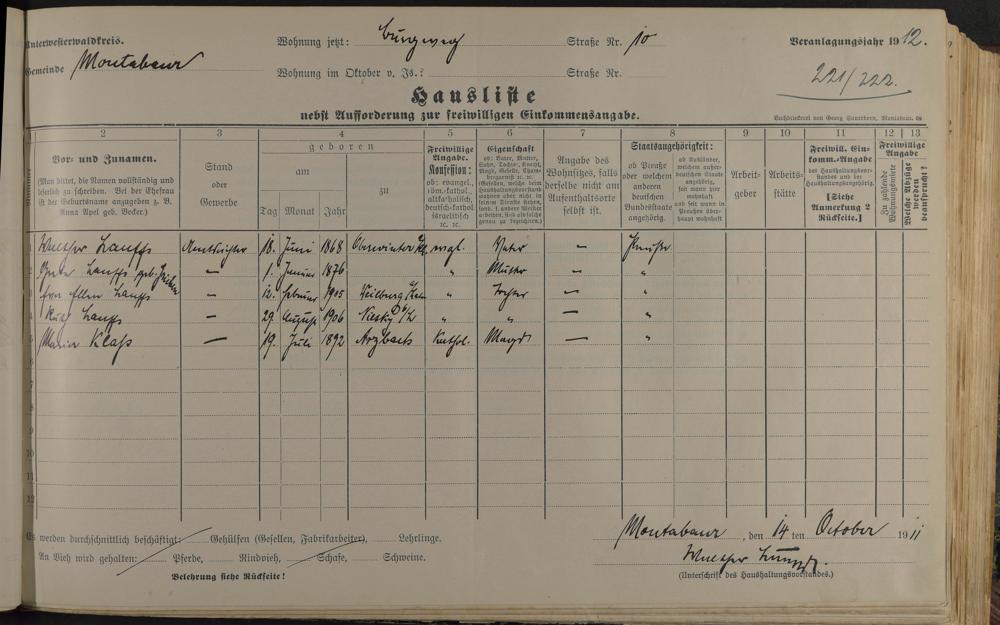 Unterwesterwaldkreis.
Gemeinde Montabaur
Wohnung jetzt: Burgweg Straße Nr. 10
Wohnung im Oktober v. Js.: Straße Nr.
Veranlagungsjahr 1912.
221/222.
Hausliste
nebst Aufforderung zur freiwilligen Einkommensangabe.
Buchdruckerei von Georg Sauerborn, Montabaur.
2 3 4 5 6 7 8 9 10 11 12 13
Vor- und Zunamen.
(Man bittet, die Namen vollständig und
leserlich zu schreiben. Bei der Ehefrau
ist der Geburtsname anzugeben z. B.
Anna Apel geb. Becker.)
Stand
oder
Gewerbe
geboren
am
zu
Tag Monat Jahr
Freiwillige
Angabe.
Konfession:
ob: evangel.,
röm.-kathol.,
altkatholisch,
deutsch-kathol.
israelitisch
ꝛc. ꝛc.
Eigenschaft
ob: Vater, Mutter,
Sohn, Tochter, Knecht,
Magd, Geselle, Cham-
bregarnist ꝛc. ꝛc.
Angabe des
Wohnsitzes, falls
derselbe nicht am
Aufenthaltsorte
selbst ist.
Staatsangehörigkeit:
ob Preuße
oder welchem
anderen
deutschen
Bundesstaate
angehörig.
ob Ausländer,
welchem außer-
deutschen Staate
angehörig,
seit wann hier
wohnhaft und
seit wann in
Preußen über-
haupt wohnhaft
Arbeit-
geber
Arbeits-
stätte
Freiwill. Ein-
komm.-Angabe
des Haushaltungsvor-
standes und der
Haushaltungsangehörig.
[Siehe
Anmerkung 2
Rückseite.]
Freiwillige
Angabe
Zu zahlende
Wohnungsmiete
Welche Abzüge
werden
beansprucht?
Walther Lauffs Amtsrichter 18. Juni 1868 Oberwinter evgl. Vater — Preuße
2 Lauffs geb. — 1. Januar 1876 " Mutter — "
3 Eva Ellen Lauffs — 12. Februar 1905 Weilburg " Tochter — "
4 Lauffs — 29. August 1906 Niesky " " — "
5 Maria Klaß — 19. Juli 1892 Arzbach Kathol. Magd — "
6
7
8
9
10
11
12
Es werden durchschnittlich beschäftigt: Gehülfen (Gesellen, Fabrikarbeiter), Lehrlinge.
An Vieh wird gehalten: Pferde, Rindvieh, Schafe, Schweine.
Belehrung siehe Rückseite!
Montabaur, den 14 ten October 1911
Walther Lauffs.
(Unterschrift des Haushaltungsvorstandes.)